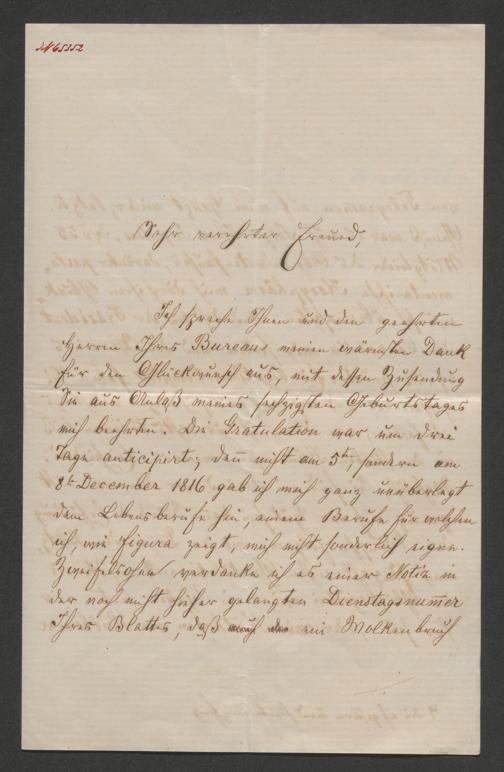 N 65352
Sehr verehrter Freund,
Ich spreche Ihnen und den geehrten
Herren Ihres Bureaus meinen wärmsten Dank
für den Glückwunsch aus, mit dessen Zusendung
Sie aus Anlaß meines sechzigsten Geburtstages
mich beehrten. Die Gratulation war um drei
Tage anticipirt, den̄ nicht am 5ten, sondern am
8t December 1816 gab ich mich ganz unüberlegt
dem Lebensberufe hin, einem Berufe für welchen
ich, wie figura zeigt, mich nicht sonderlich eigne.
Zweifelsohne verdanke ich es einer Notiz in
der noch nicht hieher gelangten Dienstagsnum̄er
Ihres Blattes, daß ein Wolkenbruch